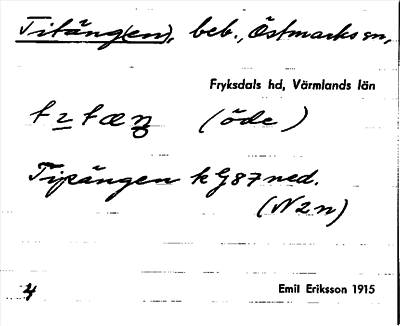 Titäng(en), beb., Östmarks sn,
Fryksdals hd, Värmlands län
(öde)
Tipängen k G87 ned.
(N2n)
4
Emil Eriksson 1915